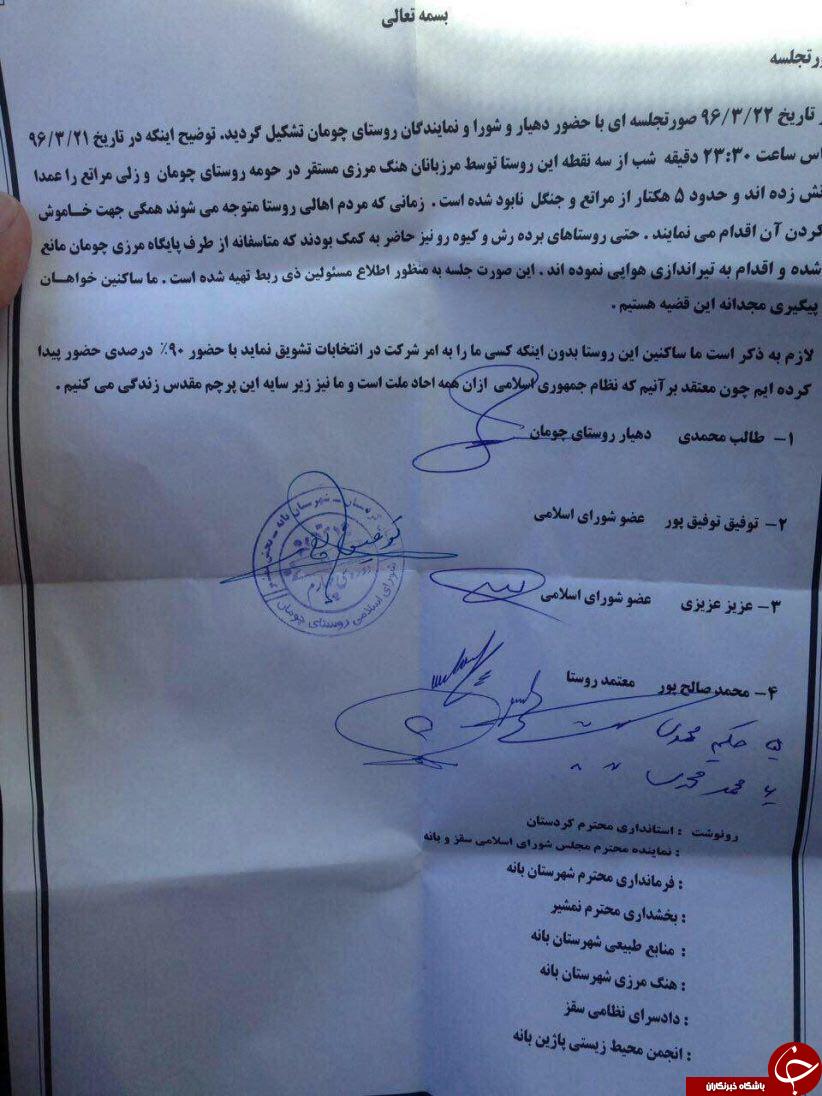 بسمه تعالی
رتجلسه
ر تاریخ ۹۶/۳/۲۲ صورتجلسه ای با حضور دهیار و شورا و نمایندگان روستای چومان تشکیل گردید. توضیح اینکه در تاریخ ۹۶/۳/۲۱
اس ساعت ۲۳:۳۰ دقیقه شب از سه نقطه این روستا توسط مرزبانان هنگ مرزی مستقر در حومه روستای چومان و زلی مراتع را عمدا
تش زده اند و حدود ۵ هکتار از مراتع و جنگل نابود شده است . زمانی که مردم اهالی روستا متوجه می شوند همگی جهت خاموش
کردن آن اقدام می نمایند . حتی روستاهای برده رش و کیوه رو نیز حاضر به کمک بودند که متاسفانه از طرف پایگاه مرزی چومان مانع
شده و اقدام به تیراندازی هوایی نموده اند . این صورت جلسه به منظور اطلاع مسئولین ذی ربط تهیه شده است . ما ساکنین خواهان
پیگیری مجدانه این قضیه هستیم .
لازم به ذکر است ما ساکنین این روستا بدون اینکه کسی ما را به امر شرکت در انتخابات تشویق نماید با حضور ۹۰٪ درصدی حضور پیدا
کرده ایم چون معتقد برآنیم که نظام جمهوری اسلامی ازان همه احاد ملت است و ما نیز زیر سایه این پرچم مقدس زندگی می کنیم .
۱- طالب محمدی دهیار روستای چومان
۲- توفیق توفیق پور عضو شورای اسلامی
شهرستان بانه - بخش نمشیر
شورای اسلامی روستای چومان
۳- عزیز عزیزی عضو شورای اسلامی
۴- محمد صالح پور معتمد روستا
۵ حکیم محمدی
۶ محمد محمدی
رونوشت : استانداری محترم کردستان
: نماینده محترم مجلس شورای اسلامی سقز و بانه
: فرمانداری محترم شهرستان بانه
: بخشداری محترم نمشیر
: منابع طبیعی شهرستان بانه
: هنگ مرزی شهرستان بانه
: دادسرای نظامی سقز
: انجمن محیط زیستی پاژین بانه
باشگاه خبرنگاران